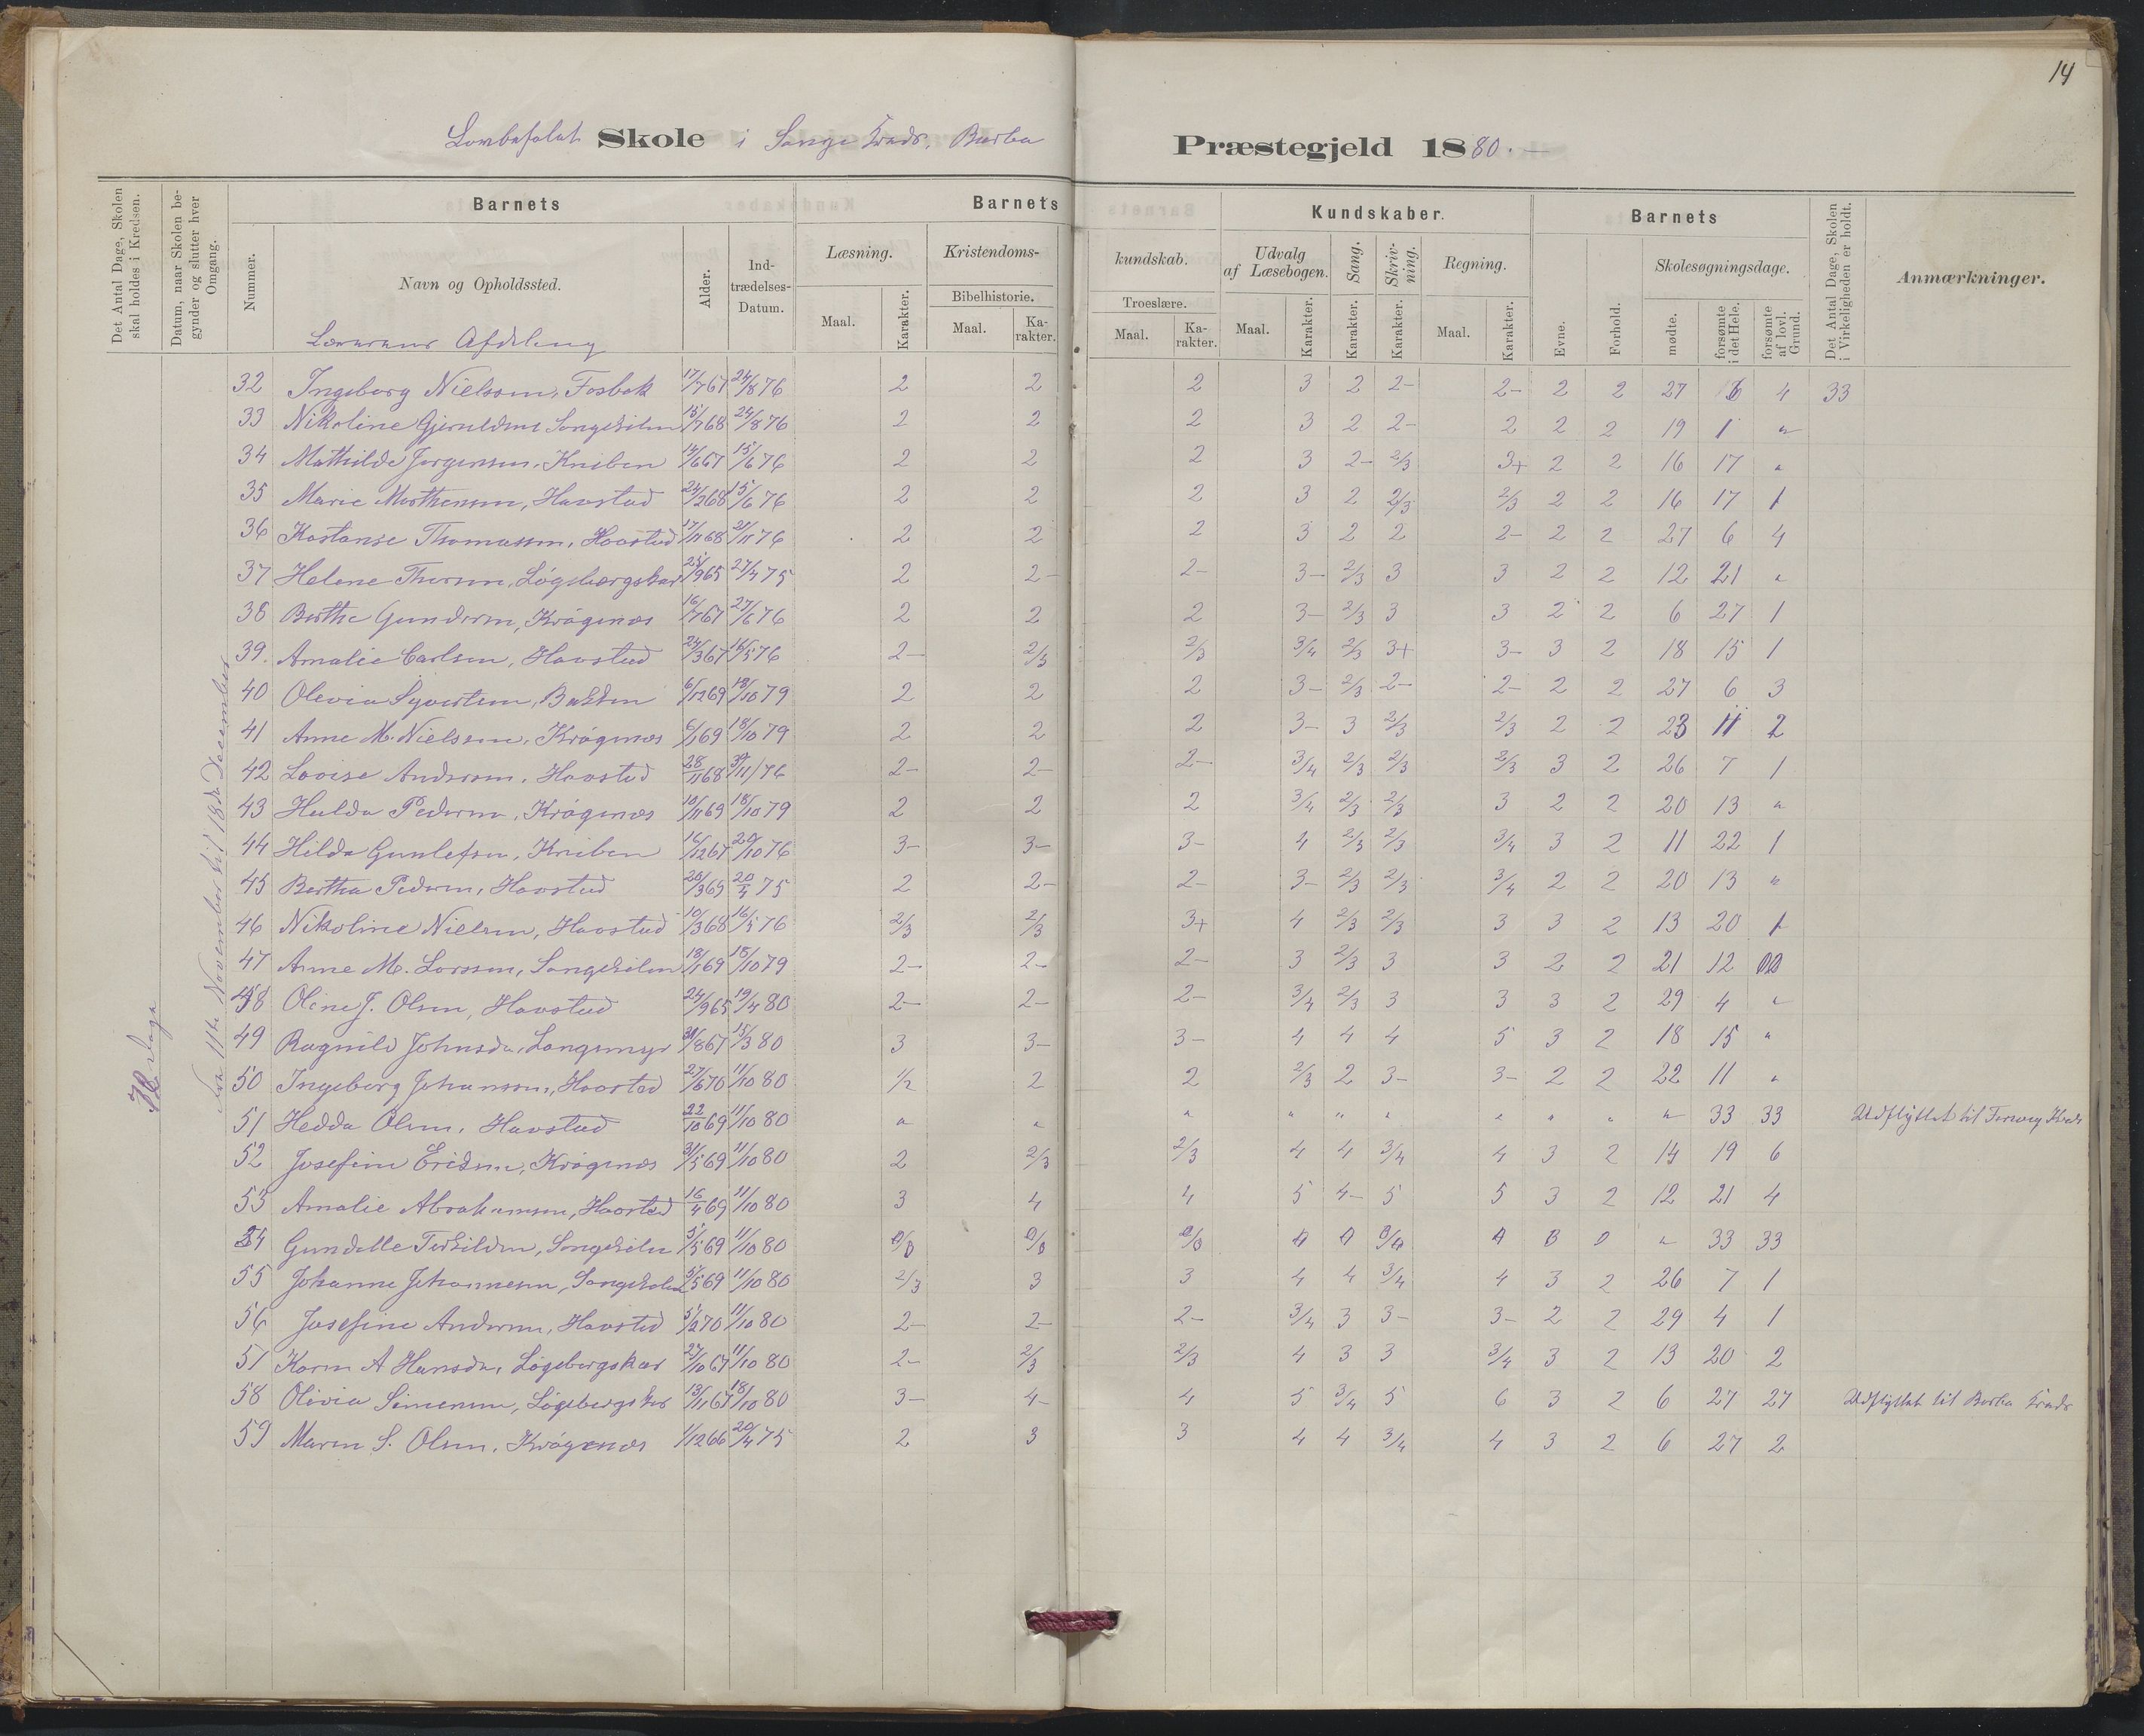 14
Skole i Songe Kreds, Barbu Præstegjeld 1880.
Det Antal Dage, Skolen skal holdes i Kredsen.
Datum, naar Skolen begynder og slutter hver Omgang.
Barnets
Nummer.
Navn og Opholdssted.
Alder.
Indtrædelses-Datum.
Barnets Kundskaber.
Læsning.
Maal.
Karakter.
Kristendomskundskab.
Bibelhistorie.
Maal.
Karakter.
Troeslære.
Maal.
Karakter.
Udvalg af Læsebogen.
Maal.
Karakter.
Sang.
Karakter.
Skrivning.
Karakter.
Regning.
Maal.
Karakter.
Barnets
Evne.
Forhold.
Skolesøgningsdage.
mødte.
forsømte i det Hele.
forsømte af lovl. Grund.
Det Antal Dage, Skolen i Virkeligheden er holdt.
Anmærkninger.
Afdeling
Dage
11te November til 18de December
32 Ingeborg Nielsen, Fosbæk 17/7 67 24/8 76 2 2 2 3 2 2- 2- 2 2 27 6 4 33
33 Nikoline Gjeruldsen Songekilen 15/7 68 24/8 76 2 2 2 3 2 2- 2 2 2 19 1 "
34 Mathilde Jørgensen, Kniben 14/6 67 15/6 76 2 2 2 3 2- 2/3 3+ 2 2 16 17 "
35 Marie Morthensen, Havstad 24/2 68 15/6 76 2 2 2 3 2 2/3 2/3 2 2 16 17 1
36 Kostanse Thomassen, Havstad 17/11 68 21/11 76 2 2 2 3 2 2 2- 2 2 27 6 4
37 Helene Thorsen, Løgebergskar 25/9 65 27/4 75 2 2- 2- 3- 2/3 3 3 2 2 12 21 "
38 Berthe Gundersen, Krøgenæs 16/7 67 27/6 76 2 2 2 3- 2/3 3 3 2 2 6 27 1
39. Amalie Carlsen, Havstad 24/3 67 16/5 76 2- 2/3 2/3 3/4 2/3 3+ 3- 3 2 18 15 1
40 Olevia Syvertsen, Bakken 6/12 69 18/10 79 2 2 2 3- 2/3 2- 2- 2 2 27 6 3
41 Anne M. Nielsen, Krøgenæs 6/1 69 18/10 79 2 2 2 3- 3 2/3 2/3 2 2 23 11 2
42 Lovise Andersen, Havstad 28/11 68 30/11 76 2- 2- 2- 3/4 2/3 2/3 2/3 3 2 26 7 1
43 Hulda Pedersen, Krøgenæs 10/11 69 18/10 79 2 2 2 3/4 2/3 2/3 3 2 2 20 13 "
44 Hilda Gunlefsen, Kniben 16/12 67 20/10 76 3- 3- 3- 4 2/3 2/3 3/4 3 2 11 22 1
45 Bertha Pedersen, Havstad 20/3 69 20/4 75 2 2- 2- 3- 2/3 2/3 3/4 2 2 20 13 "
46 Nikoline Nielsen, Havstad 10/3 68 16/5 76 2/3 2/3 3+ 4 2/3 2/3 3 3 2 13 20 1
47 Anne M. Larssen, Songekilen 18/1 69 18/10 79 2- 2- 2- 3 2/3 3 3 2 2 21 12
48 Oline J. Olsen, Havstad 24/9 65 19/4 80 2- 2- 2- 3/4 2/3 3 3 3 2 29 4 "
49 Ragnild Johnsdr, Langemyr 30/8 67 15/3 80 3 3- 3- 4 4 4 5 3 2 18 15 "
50 Ingeborg Johannsen, Havstad 27/6 70 11/10 80 1/2 2 2 2/3 2 3- 3- 2 2 22 11 "
51 Hedda Olsen, Havstad 22/10 69 11/10 80 " " " " " " " " " " 33 33 Udflyttet til
52 Josefine Eriksen, Krøgenæs 31/5 69 11/10 80 2 2/3 2/3 4 4 3/4 4 3 2 14 19 6
53 Amalie Abrahamsen, Havstad 16/4 69 11/10 80 3 4 4 5 4- 5 5 3 2 12 21 4
54 Gundelle Terkildsen, Songekilen 5/5 69 11/10 80 " 33 33
55 Johanne Johannesen, Songekilen 5/5 69 11/10 80 2/3 3 3 4 4 3/4 4 3 2 26 7 1
56 Josefine Andersen, Havstad 5/2 70 11/10 80 2- 2- 2- 3/4 3 3- 3- 2 2 29 4 1
57 Karen A Hansdr, Løgebergskar 27/10 67 11/10 80 2- 2/3 2/3 4 3 3 3/4 3 2 13 20 2
58 Olivia Simensen, Løgebergskar 13/11 67 18/10 80 3- 4- 4 5 3/4 5 6 3 2 6 27 27 Udflyttet til Barbu Kreds
59 Maren S. Olsen, Krøgenæs 1/12 66 20/4 75 2 3 3 4 4 3/4 4 3 2 6 27 2